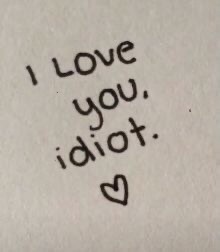 I LOVE
you.
idiot.